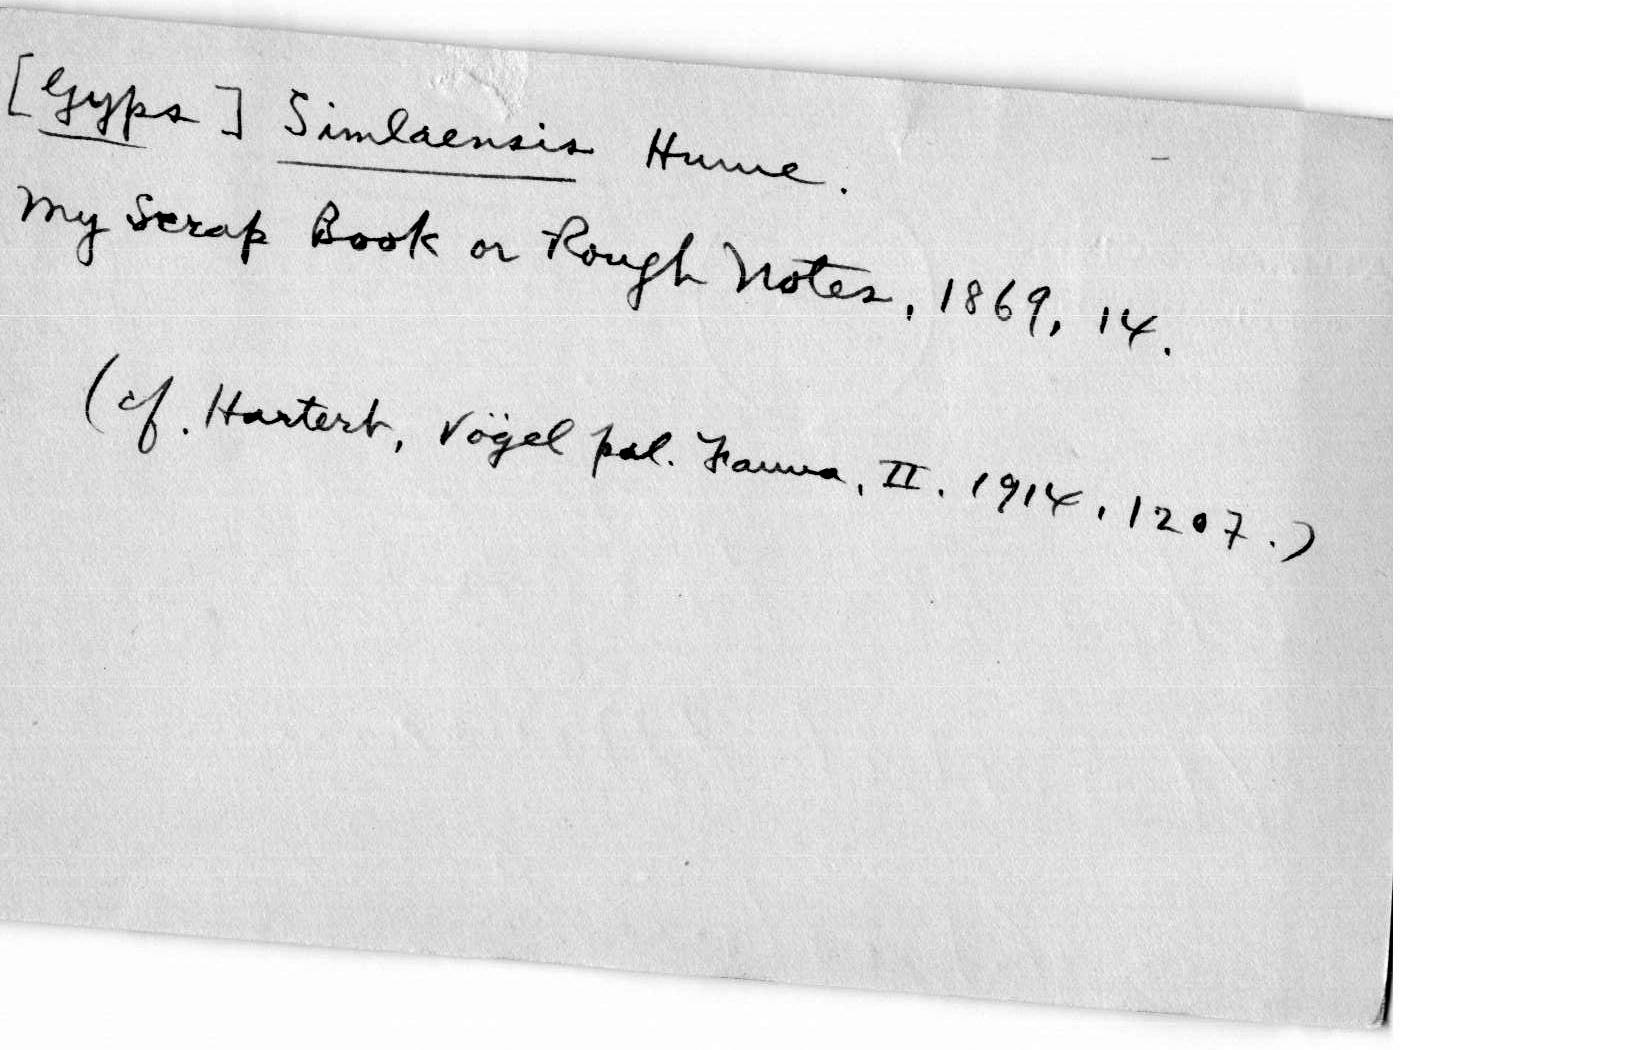 [Gyps] Simlaensis Hume.
My Scrap Book or Rough Notes, 1869, 14.
(cf. Hartert, Vögel pal. Fauna, II. 1914, 1207.)